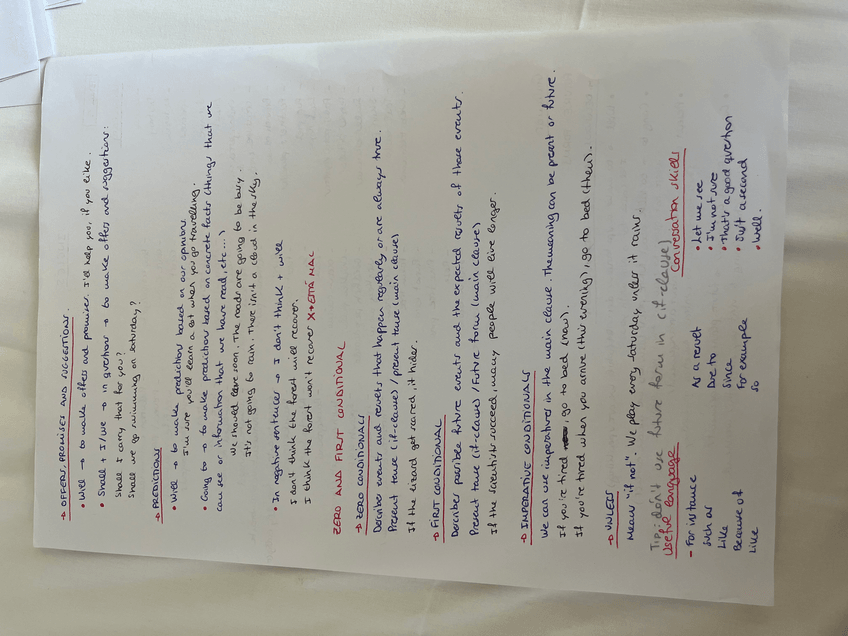 → OFFERS, PROMISES AND SUGGESTIONS.
• Will → to make offers and promises. I'll help you, if you like.
• Shall + I/we → in questions → to make offers and suggestions:
Shall I carry that for you?
Shall we go swimming on Saturday?
→ PREDICTIONS
• Will → to make predictions based on our opinions.
I'm sure you'll learn a lot when you go travelling.
• Going to → to make predictions based on concrete facts (things that we
can see or information that we have read, etc...)
We should leave soon. The roads are going to be busy.
It's not going to rain. There isn't a cloud in the sky.
• In negative sentences → I don't think + will
I don't think the forest will recover.
I think the forest won't recover X → ESTÁ MAL
ZERO AND FIRST CONDITIONAL
→ ZERO CONDITIONALS
Describes events and results that happen regularly or are always true.
Present tense (if-clause) / present tense (main clause)
If the lizard get scared, it hides.
→ FIRST CONDITIONAL
Describes possible future events and the expected results of those events.
Present tense (if-clause) / Future form (main clause)
If the scientists succeed, many people will live longer.
→ IMPERATIVE CONDITIONALS
We can use imperatives in the main clause. The meaning can be present or future.
If you're tired, go to bed (now).
If you're tired when you arrive (this evening), go to bed (then).
→ UNLESS
Means "if not". We play every Saturday unless it rains.
Tip: don't use future form in (if-clause)
Useful language
- For instance
Such as
Like
Because of
Like
As a result
Due to
Since
For example
So
Conversation skills
• Let me see
• I'm not sure
• That's a good question
• Just a second
• Well.